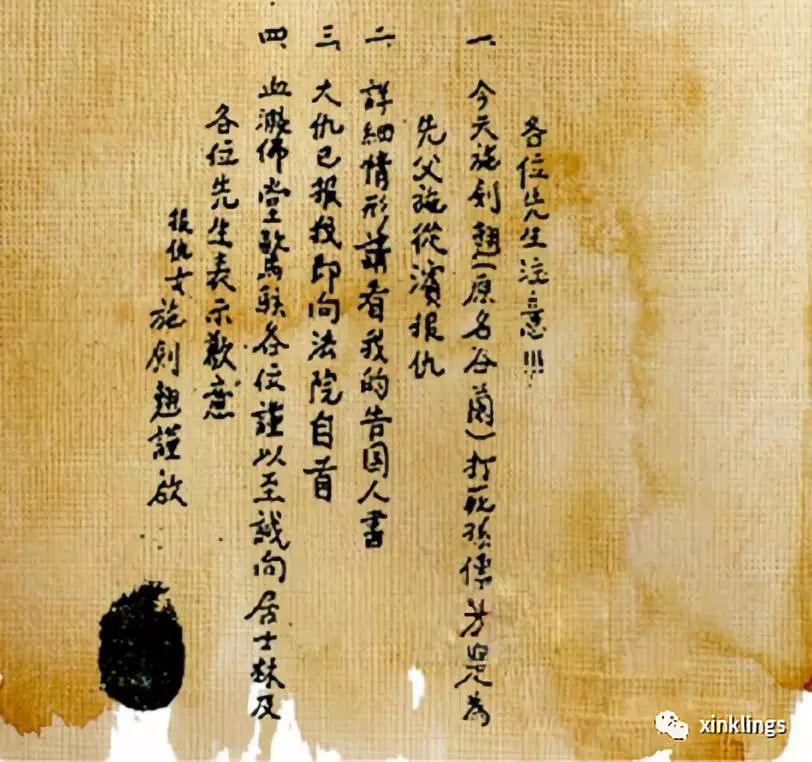 各位先生注意!!!
一、今天施劍翹(原名谷蘭)打死孫傳芳是為
先父施從濱报仇
二、詳細情形請看我的告国人書
三、大仇已报我即向法院自首
四、血濺佛堂驚駭各位謹以至誠向居士林及
各位先生表示歉意
报仇女 施劍翹謹啟
xinklings